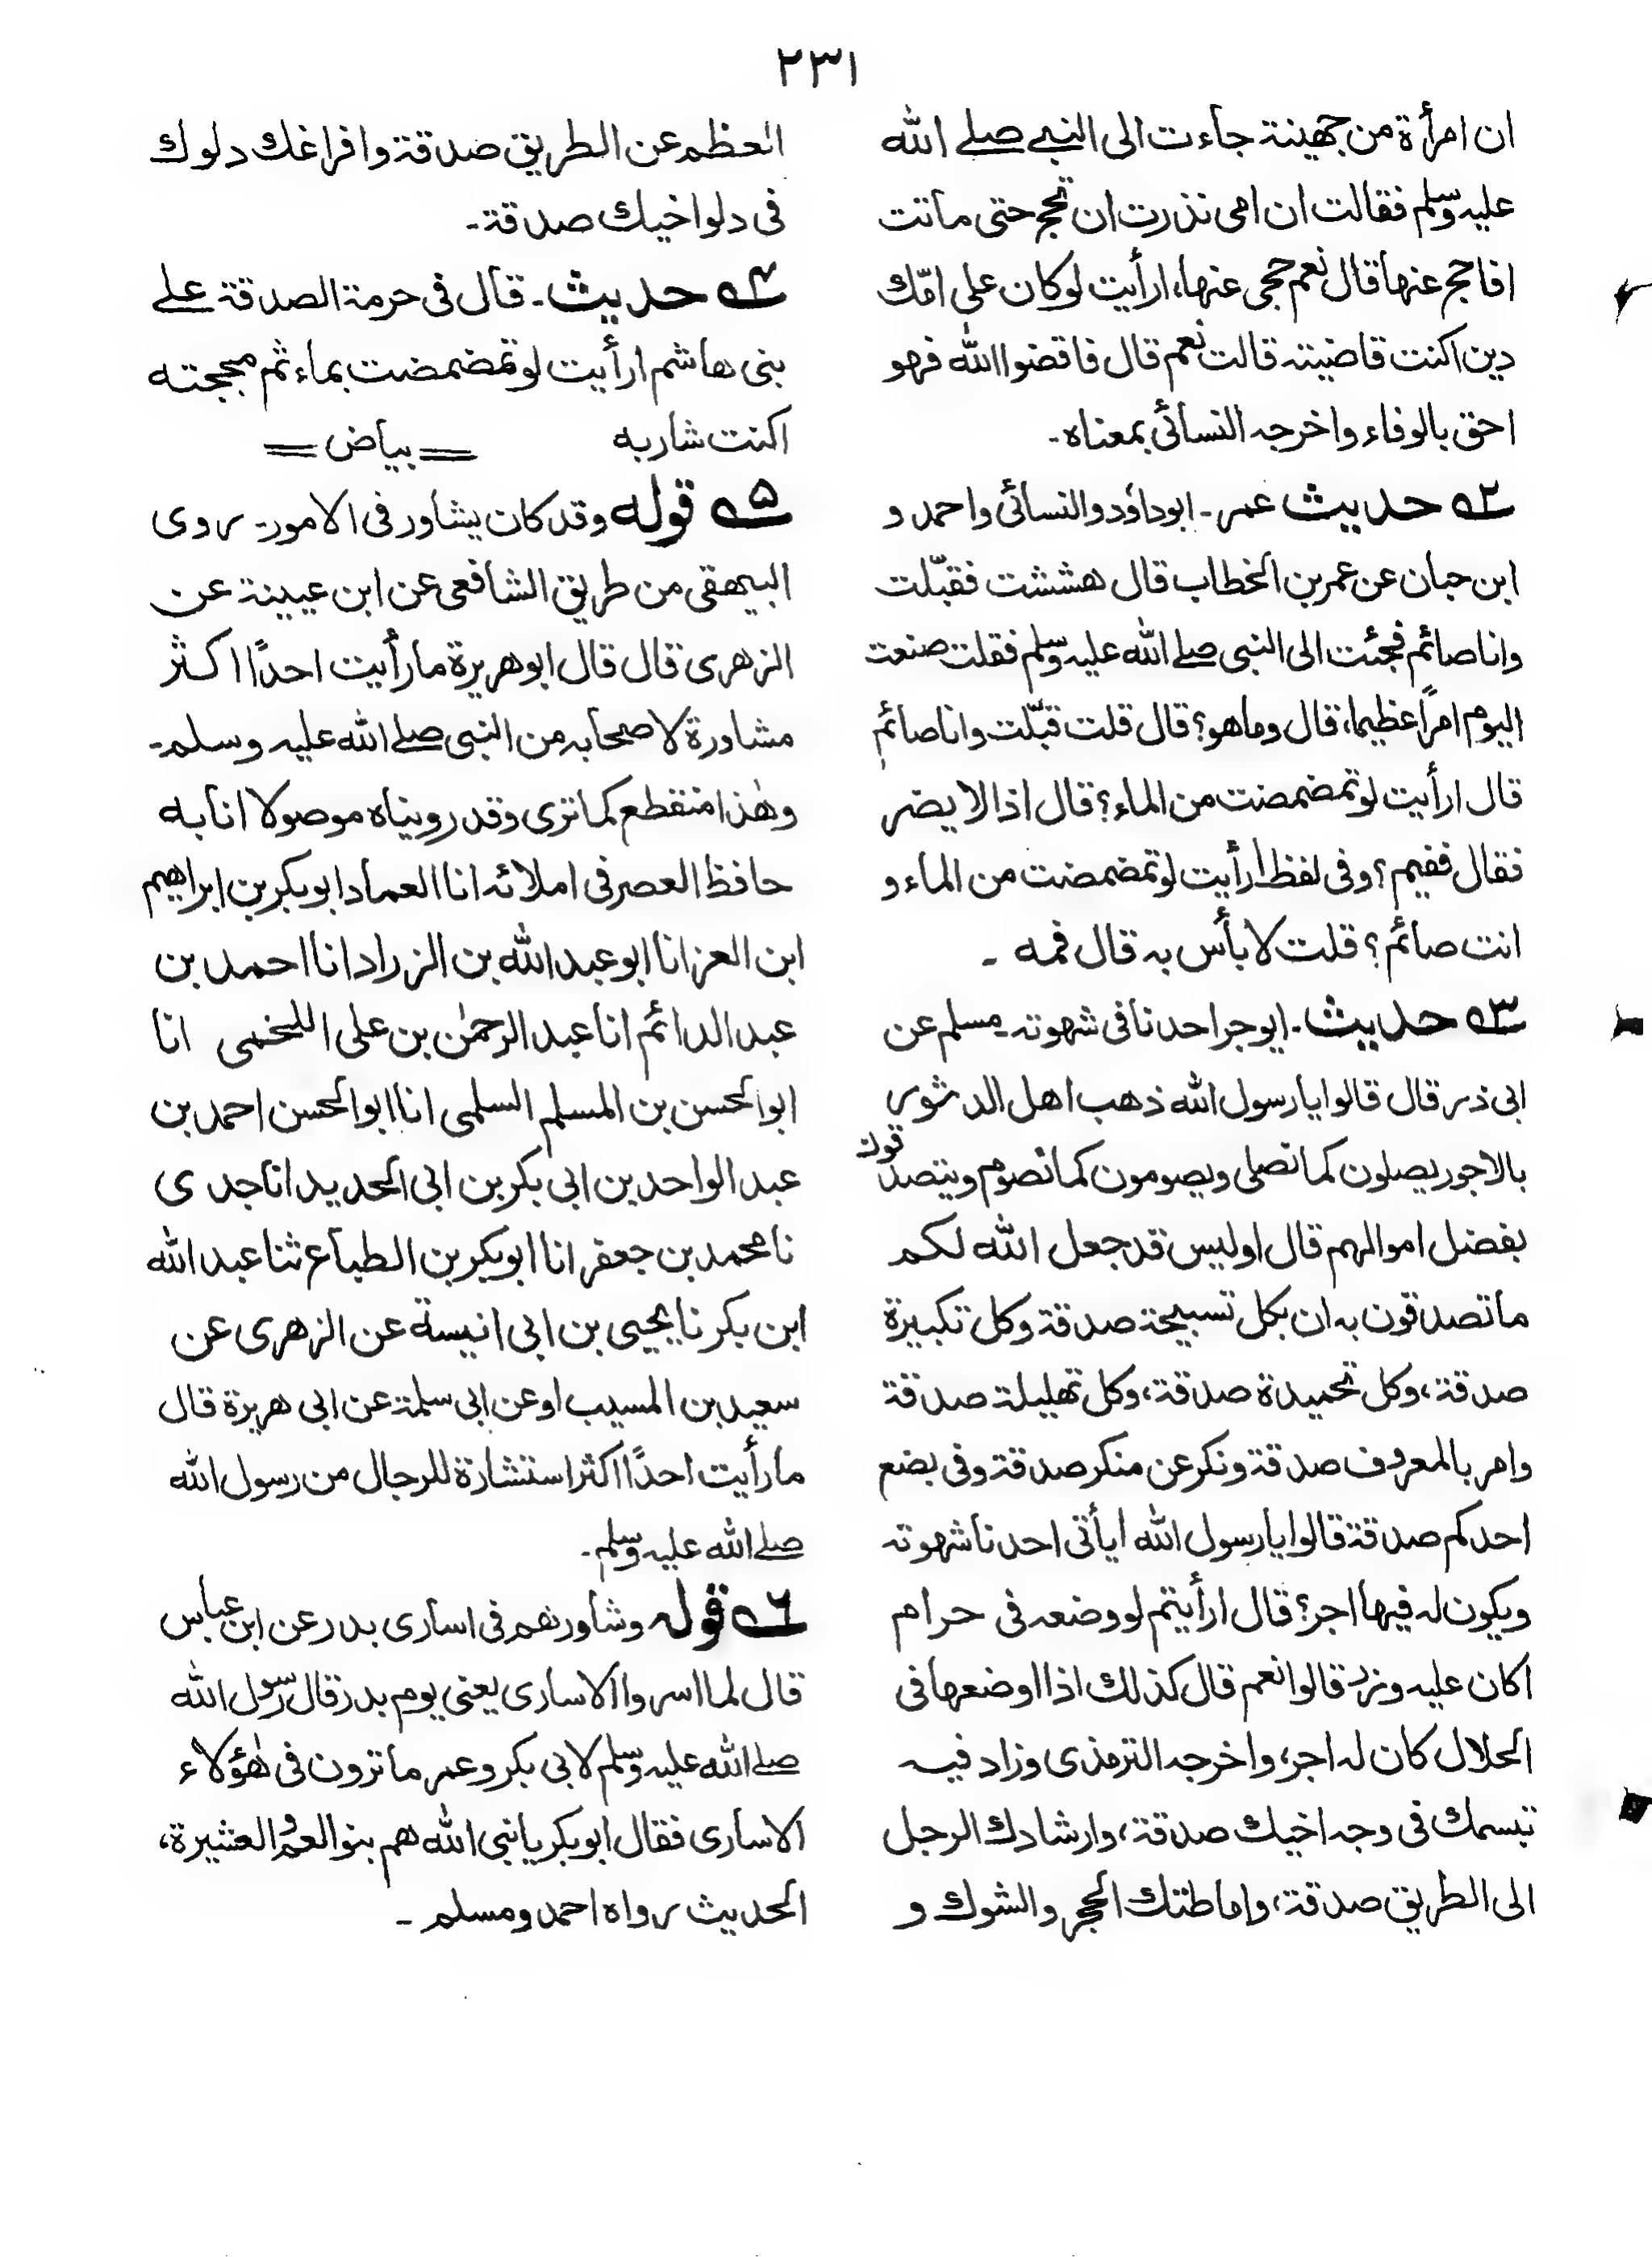 ٢٣١
ان امرأة من جهينة جاءت الى النبي صلے الله
عليه وسلم فقالت ان امى نذرت ان تحج حتى ماتت
افاحج عنها قال نعم حجى عنها، ارأيت لو كان على امّك
دين اكنت قاضيته قالت نعم قال فاقضوا الله فهو
احق بالوفاء واخرجه النسائى بمعناه۔
٢ے حديث عمر۔ ابوداؤد والنسائى واحمد و
ابن حبان عن عمر بن الخطاب قال هششت فقبّلت
وانا صائم فجئت الى النبى صلے الله عليه وسلم فقلت صنعت
اليوم امرًا عظيما، قال وما هو؟ قال قلت قبّلت وانا صائم
قال ارأيت لو تمضمضت من الماء؟ قال اذا لا يضر
فقال ففيم؟ وفى لفظ ارأيت لو تمضمضت من الماء و
انت صائم؟ قلت لا بأس به قال فمه ۔
٣ے حديث۔ ايوجر احدنا فى شهوته۔ مسلم عن
ابى ذر قال قالوا يا رسول الله ذهب اهل الدثور
بالاجور يصلون كما نصلى ويصومون كما نصوم ويتصدقون
بفضل اموالهم قال اوليس قد جعل الله لكم
ما تصدقون به ان بكل تسبيحة صدقة وكل تكبيرة
صدقة، وكل تحميدة صدقة، وكل تهليلة صدقة
وامر بالمعروف صدقة ونكر عن منكر صدقة وفى بضع
احدكم صدقة قالوا يا رسول الله ايأتى احدنا شهوته
ويكون له فيها اجر؟ قال ارأيتم لو وضعه فى حرام
اكان عليه وزر قالوا نعم قال كذلك اذا اوضعها فى
الحلال كان له اجر، واخرجه الترمذى وزاد فيه
تبسمك فى وجه اخيك صدقة، وارشادك الرجل
الى الطريق صدقة، واماطتك الحجر والشوك و
العظم عن الطريق صدقة وافراغك دلوك
فى دلو اخيك صدقة۔
٤ے حديث۔ قال فى حرمة الصدقة علے
بنى هاشم ارأيت لو تمضمضت بماء ثم مججته
اكنت شاربه = بياض =
٥ے قوله وقد كان يشاور فى الامور۔ روى
البيهقى من طريق الشافعى عن ابن عيينة عن
الزهرى قال قال ابو هريرة ما رأيت احدًا اكثر
مشاورة لاصحابه من النبى صلے الله عليه وسلم۔
وهٰذا منقطع كما ترى وقد رويناه موصولا انا به
حافظ العصر فى املائه انا العماد ابو بكر بن ابراهيم
ابن العز انا ابو عبد الله بن الزراد انا احمد بن
عبد الدائم انا عبد الرحمٰن بن على اللخمى انا
ابو الحسن بن المسلم السلمى انا ابو الحسن احمد بن
عبد الواحد بن ابى بكر بن ابى الحديد انا جدى
نا محمد بن جعفر انا ابو بكر بن الطباع ثنا عبد الله
ابن بكر نا يحيى بن ابى انيسة عن الزهرى عن
سعيد بن المسيب او عن ابى سلمة عن ابى هريرة قال
ما رأيت احدًا اكثر استشارة للرجال من رسول الله
صلے الله عليه وسلم۔
٦ے قوله وشاورهم فى اسارى بدر عن ابن عباس
قال لما اسروا الاسارى يعنى يوم بدر قال رسول الله
صلے الله عليه وسلم لابى بكر وعمر ما ترون فى هٰؤلاء
الاسارى فقال ابو بكر يا نبى الله هم بنو العم والعشيرة،
الحديث رواه احمد ومسلم ۔